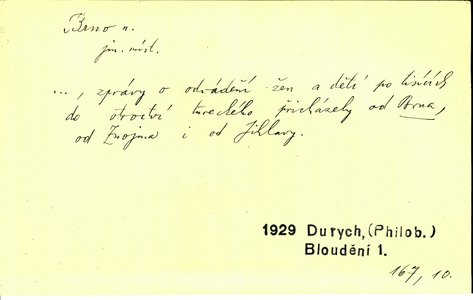 Brno n.
jm. míst.
..., zprávy o odvádění žen a dětí po tisících
do otroctví tureckého přicházely od Brna,
od Znojma i od Jihlavy.
1929 Durych, (Philob.)
Bloudění 1.
167, 10.